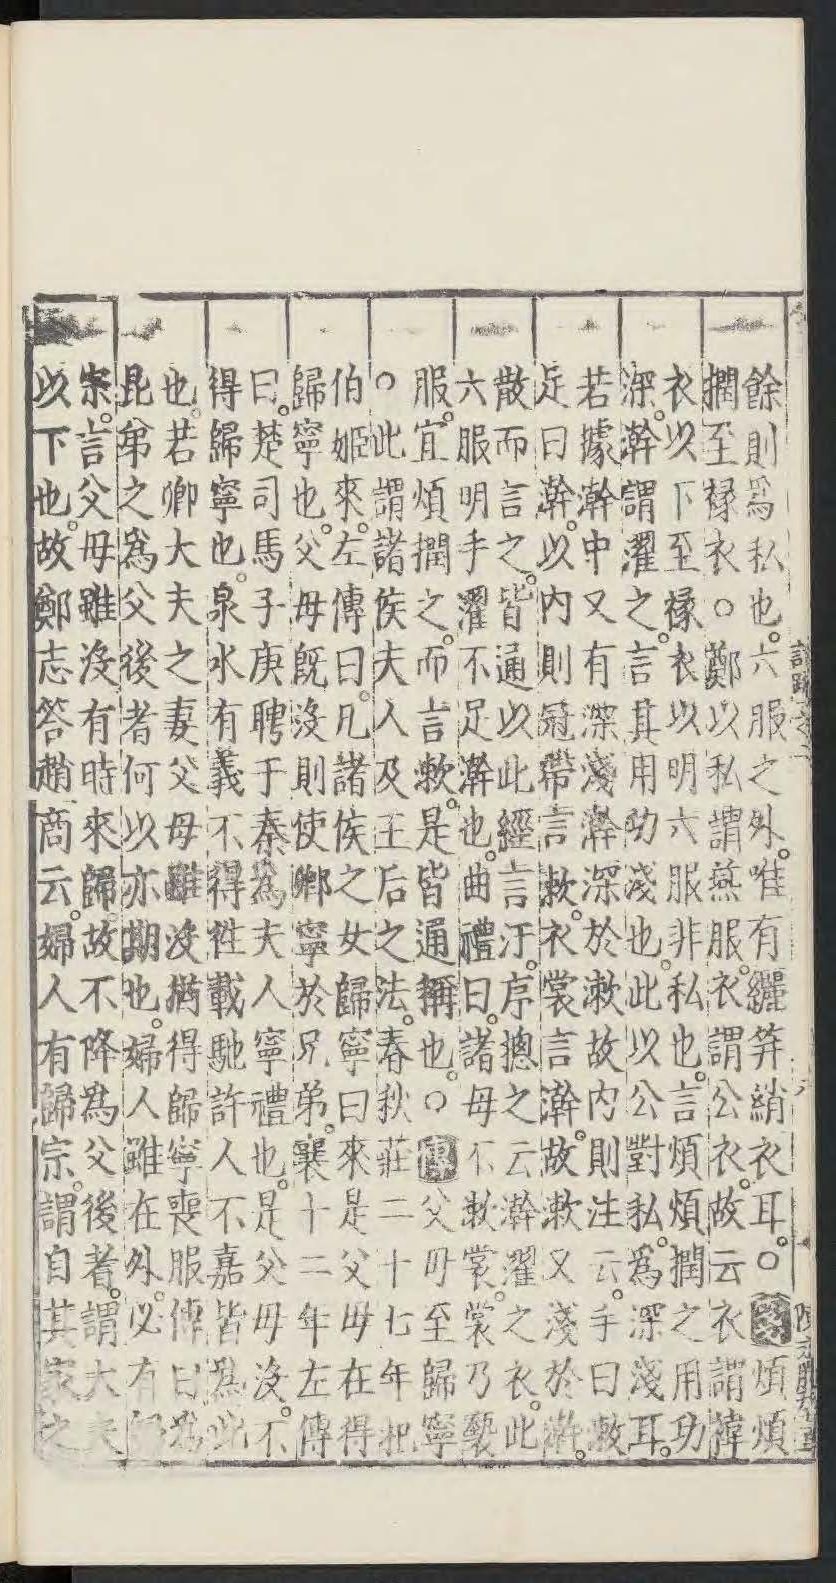 餘則爲私也。六服之外。唯有纚笄綃衣耳。○ 煩煩
撋至褖衣○鄭以私謂燕服。衣謂公衣。故云衣謂褘
衣以下至褖衣以明六服非私也。言煩煩撋之用功
深。澣謂濯之。言其用功淺也。此以公對私。爲深淺耳。
若據澣中又有深淺澣深於漱故内則注云。手曰漱
足曰澣。以内則冠帶言漱。衣裳言澣。故漱又淺於澣。
散而言之。皆通以此經言汙。序揔之云澣濯之衣。此
六服明手濯不足澣也。曲禮曰。諸母不漱裳。裳乃褻
服。宜煩撋之。而言漱。是皆通稱也。○ 父母至歸寧
○此謂諸侯夫人及王后之法。春秋莊二十七年杞
伯姬來。左傳曰。凡諸侯之女歸寧曰來是父母在得
歸寧也。父母既沒則使卿寧於兄弟。襄十二年左傳
曰。楚司馬子庚聘于秦爲夫人寧禮也。是父母沒。不
得歸寧也。泉水有義不得往載馳許人不嘉皆爲此
也。若卿大夫之妻父母雖沒猶得歸寧喪服傳曰爲
昆弟之爲父後者何以亦期也。婦人雖在外。必有歸
宗。言父母雖沒有時來歸。故不降爲父後者。謂大夫
以下也。故鄭志答趙商云。婦人有歸宗。謂自其家之